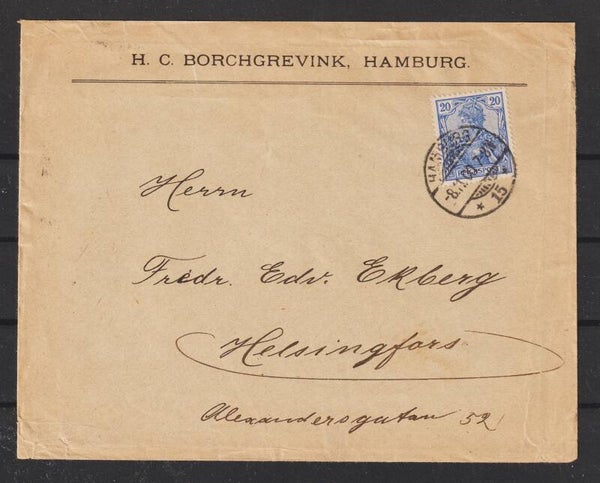 H. C. BORCHGREVINK, HAMBURG.
20 20
REICHSPOST
HAMBURG
15
Herrn
Fredr. Edv. Ekberg
Helsingfors
Alexandersgatan 52